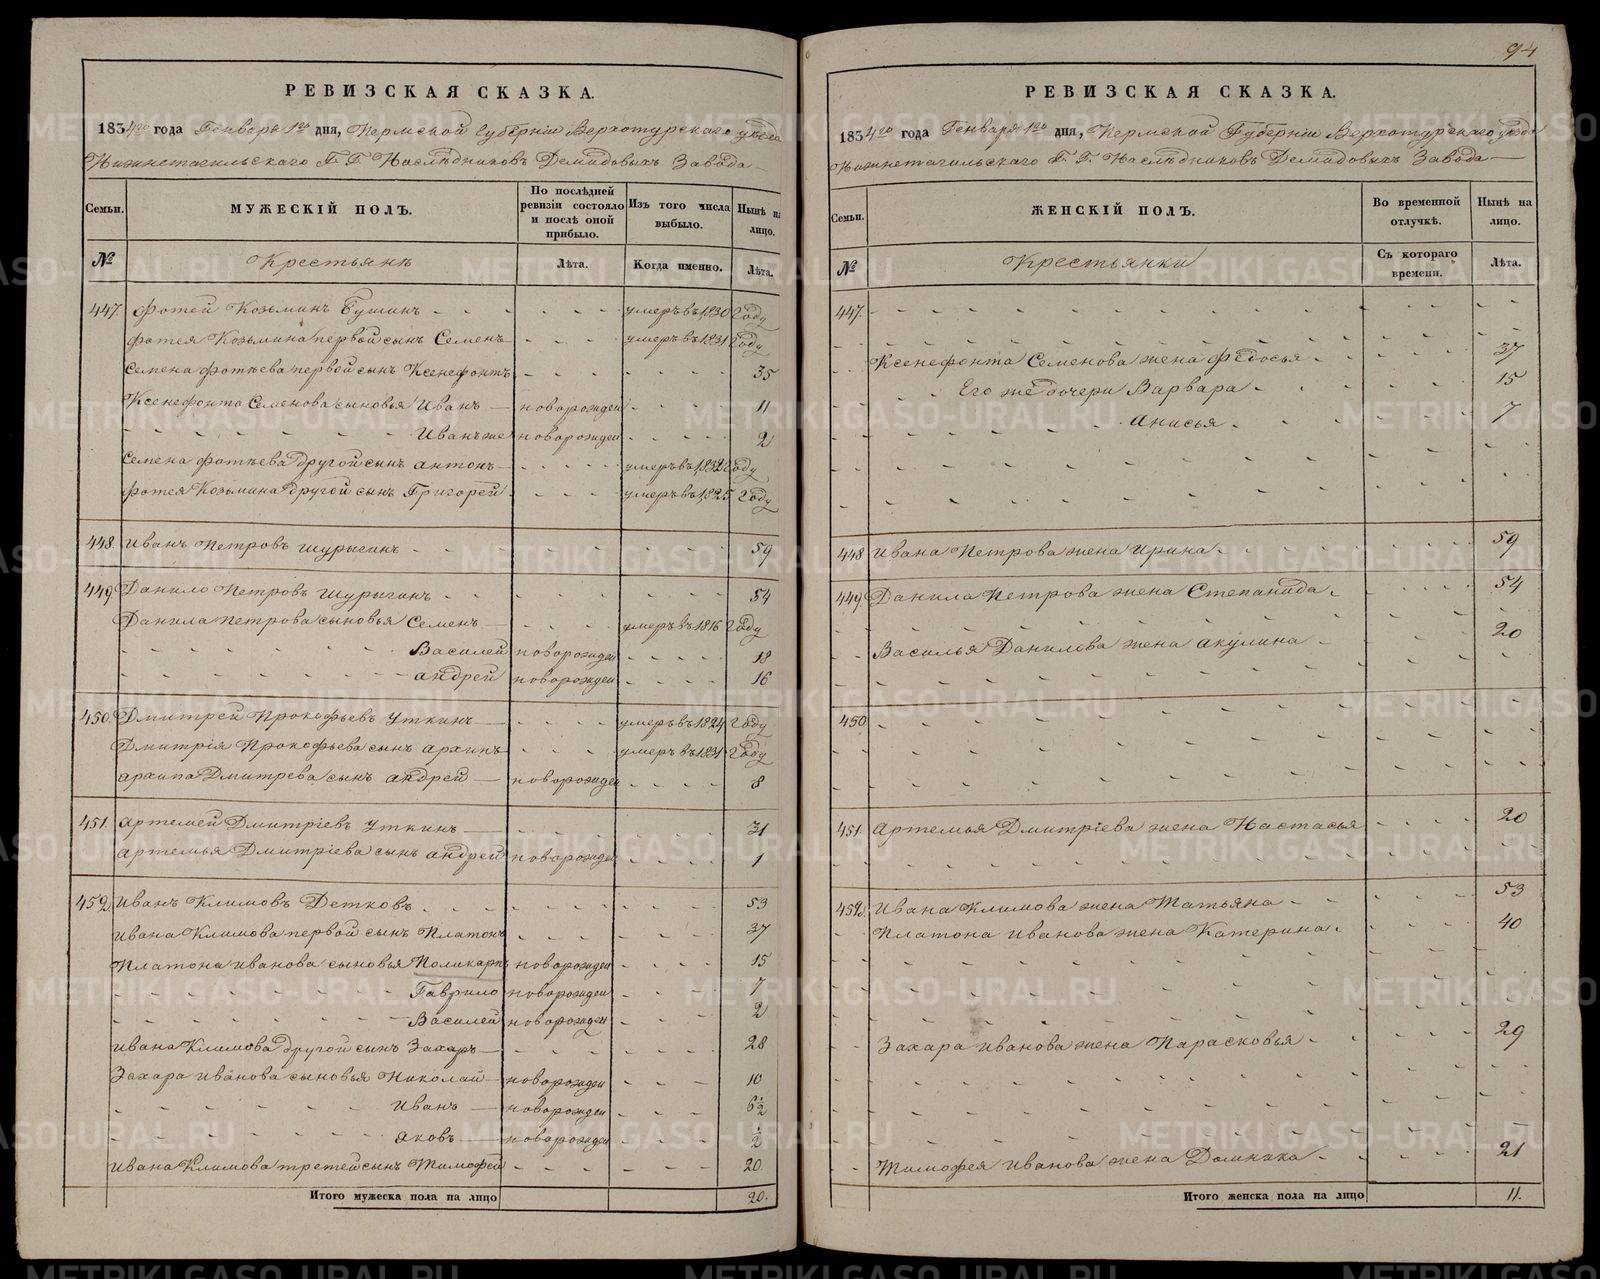 94
РЕВИЗСКАЯ СКАЗКА.
1834го года Генваря 1го дня, Пермской Губерніи Верхотурскаго уезда
Нижнетагильскаго Г. Г. Наследниковъ Демидовыхъ Завода
Семьи. МУЖЕСКІЙ ПОЛЪ. По послѣдней ревизіи состояло и послѣ оной прибыло. Изъ того числа выбыло. Нынѣ на лицо.
№ Крестьянъ Лѣта. Когда именно. Лѣта.
447. Фотей Козьминъ Бушинъ умеръ въ 1830 Году
Фотея Козьмина первой сынъ Семенъ умеръ въ 1831 Году
Семена Фотѣева первой сынъ Ксенефонтъ 35
Ксенефонта Семенова сыновья Иванъ новорожден 11
Иванъ же новорожден 2
Семена Фотѣева другой сынъ Антонъ умеръ въ 1832 Году
Фотея Козьмина другой сынъ Григорей умеръ въ 1825 Году
448. Иванъ Петровъ Шурыгинъ 59
449. Данило Петровъ Шурыгинъ 54
Данила Петрова сыновья Семенъ умеръ въ 1816 Году
Василей новорожден 18
Андрей новорожден 16
450. Дмитрей Прокофьевъ Уткинъ умеръ въ 1824 Году
Дмитрія Прокофьева сынъ Архипъ умеръ въ 1831 Году
Архипа Дмитрева сынъ Андрей новорожден 8
451. Артемей Дмитріевъ Уткинъ 31
Артемья Дмитріева сынъ Андрей новорожден 1
452. Иванъ Климовъ Детковъ 53
Ивана Климова первой сынъ Платонъ 37
Платона Иванова сыновья Поликарпъ новорожден 15
Гаврило новорожден 7
Василей новорожден 2
Ивана Климова другой сынъ Захаръ 28
Захара Иванова сыновья Николай новорожден 10
Иванъ новорожден 6½
Яковъ новорожден ½
Ивана Климова третей сынъ Тимофей 20
Итого мужеска пола на лицо 20.
РЕВИЗСКАЯ СКАЗКА.
1834го года Генваря 1го дня, Пермской Губерніи Верхотурскаго уезда
Нижнетагильскаго Г. Г. Наследниковъ Демидовыхъ Завода
Семьи. ЖЕНСКІЙ ПОЛЪ. Во временной отлучкѣ. Нынѣ на лицо.
№ Крестьянки Съ котораго времени. Лѣта.
447.
Ксенефонта Семенова жена Федосья 37
Его же дочери Варвара 15
Анисья 7
448 Ивана Петрова жена Ирина 59
449 Данила Петрова жена Степанида 54
Василья Данилова жена Акулина 20
450
451 Артемья Дмитріева жена Настасья 20
452. Ивана Климова жена Татьяна 53
Платона Иванова жена Катерина 40
Захара Иванова жена Парасковья 29
Тимофея Иванова жена Домника 21
Итого женска пола на лицо 11.
METRIKI.GASO-URAL.RU